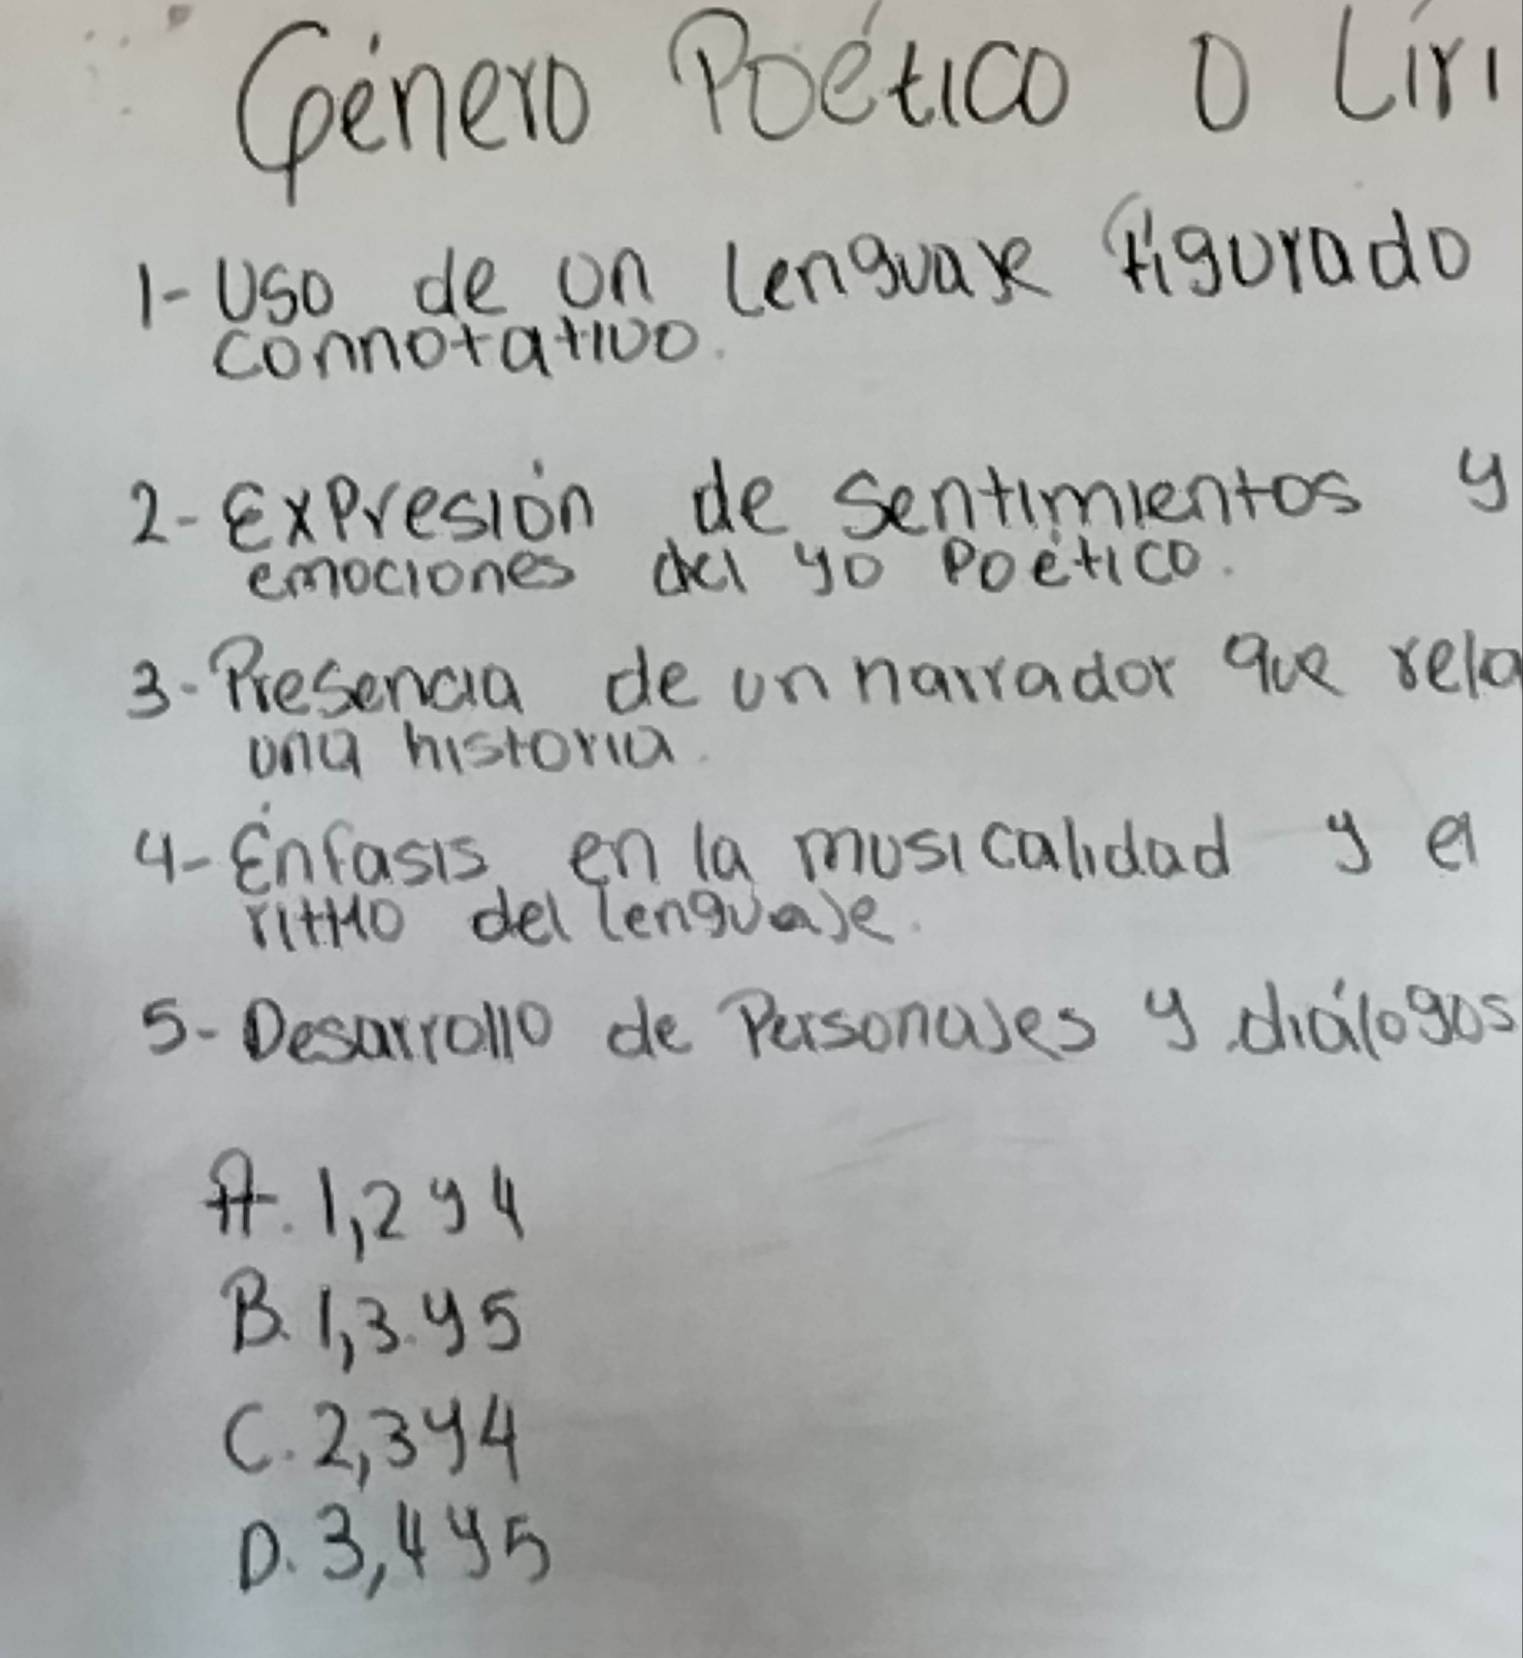 Género Poético o Liri
1- Uso de un lenguaje figurado
connotativo.
2- Expresión de sentimientos y
emociones del yo Poético.
3- Presencia de un narrador que rela
una historia.
4- Énfasis en la musicalidad y el
ritmo del lenguaje.
5- Desarrollo de Personajes y diálogos
A. 1,2 y 4
B. 1,3 y 5
C. 2,3 y 4
D. 3,4 y 5